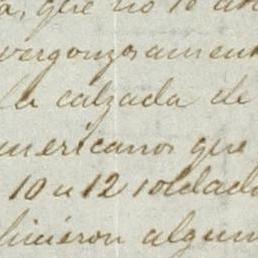 que no lo
vergonzosamen
la calzada de
mericanos que
10 u 12 soldad
hicieron algun